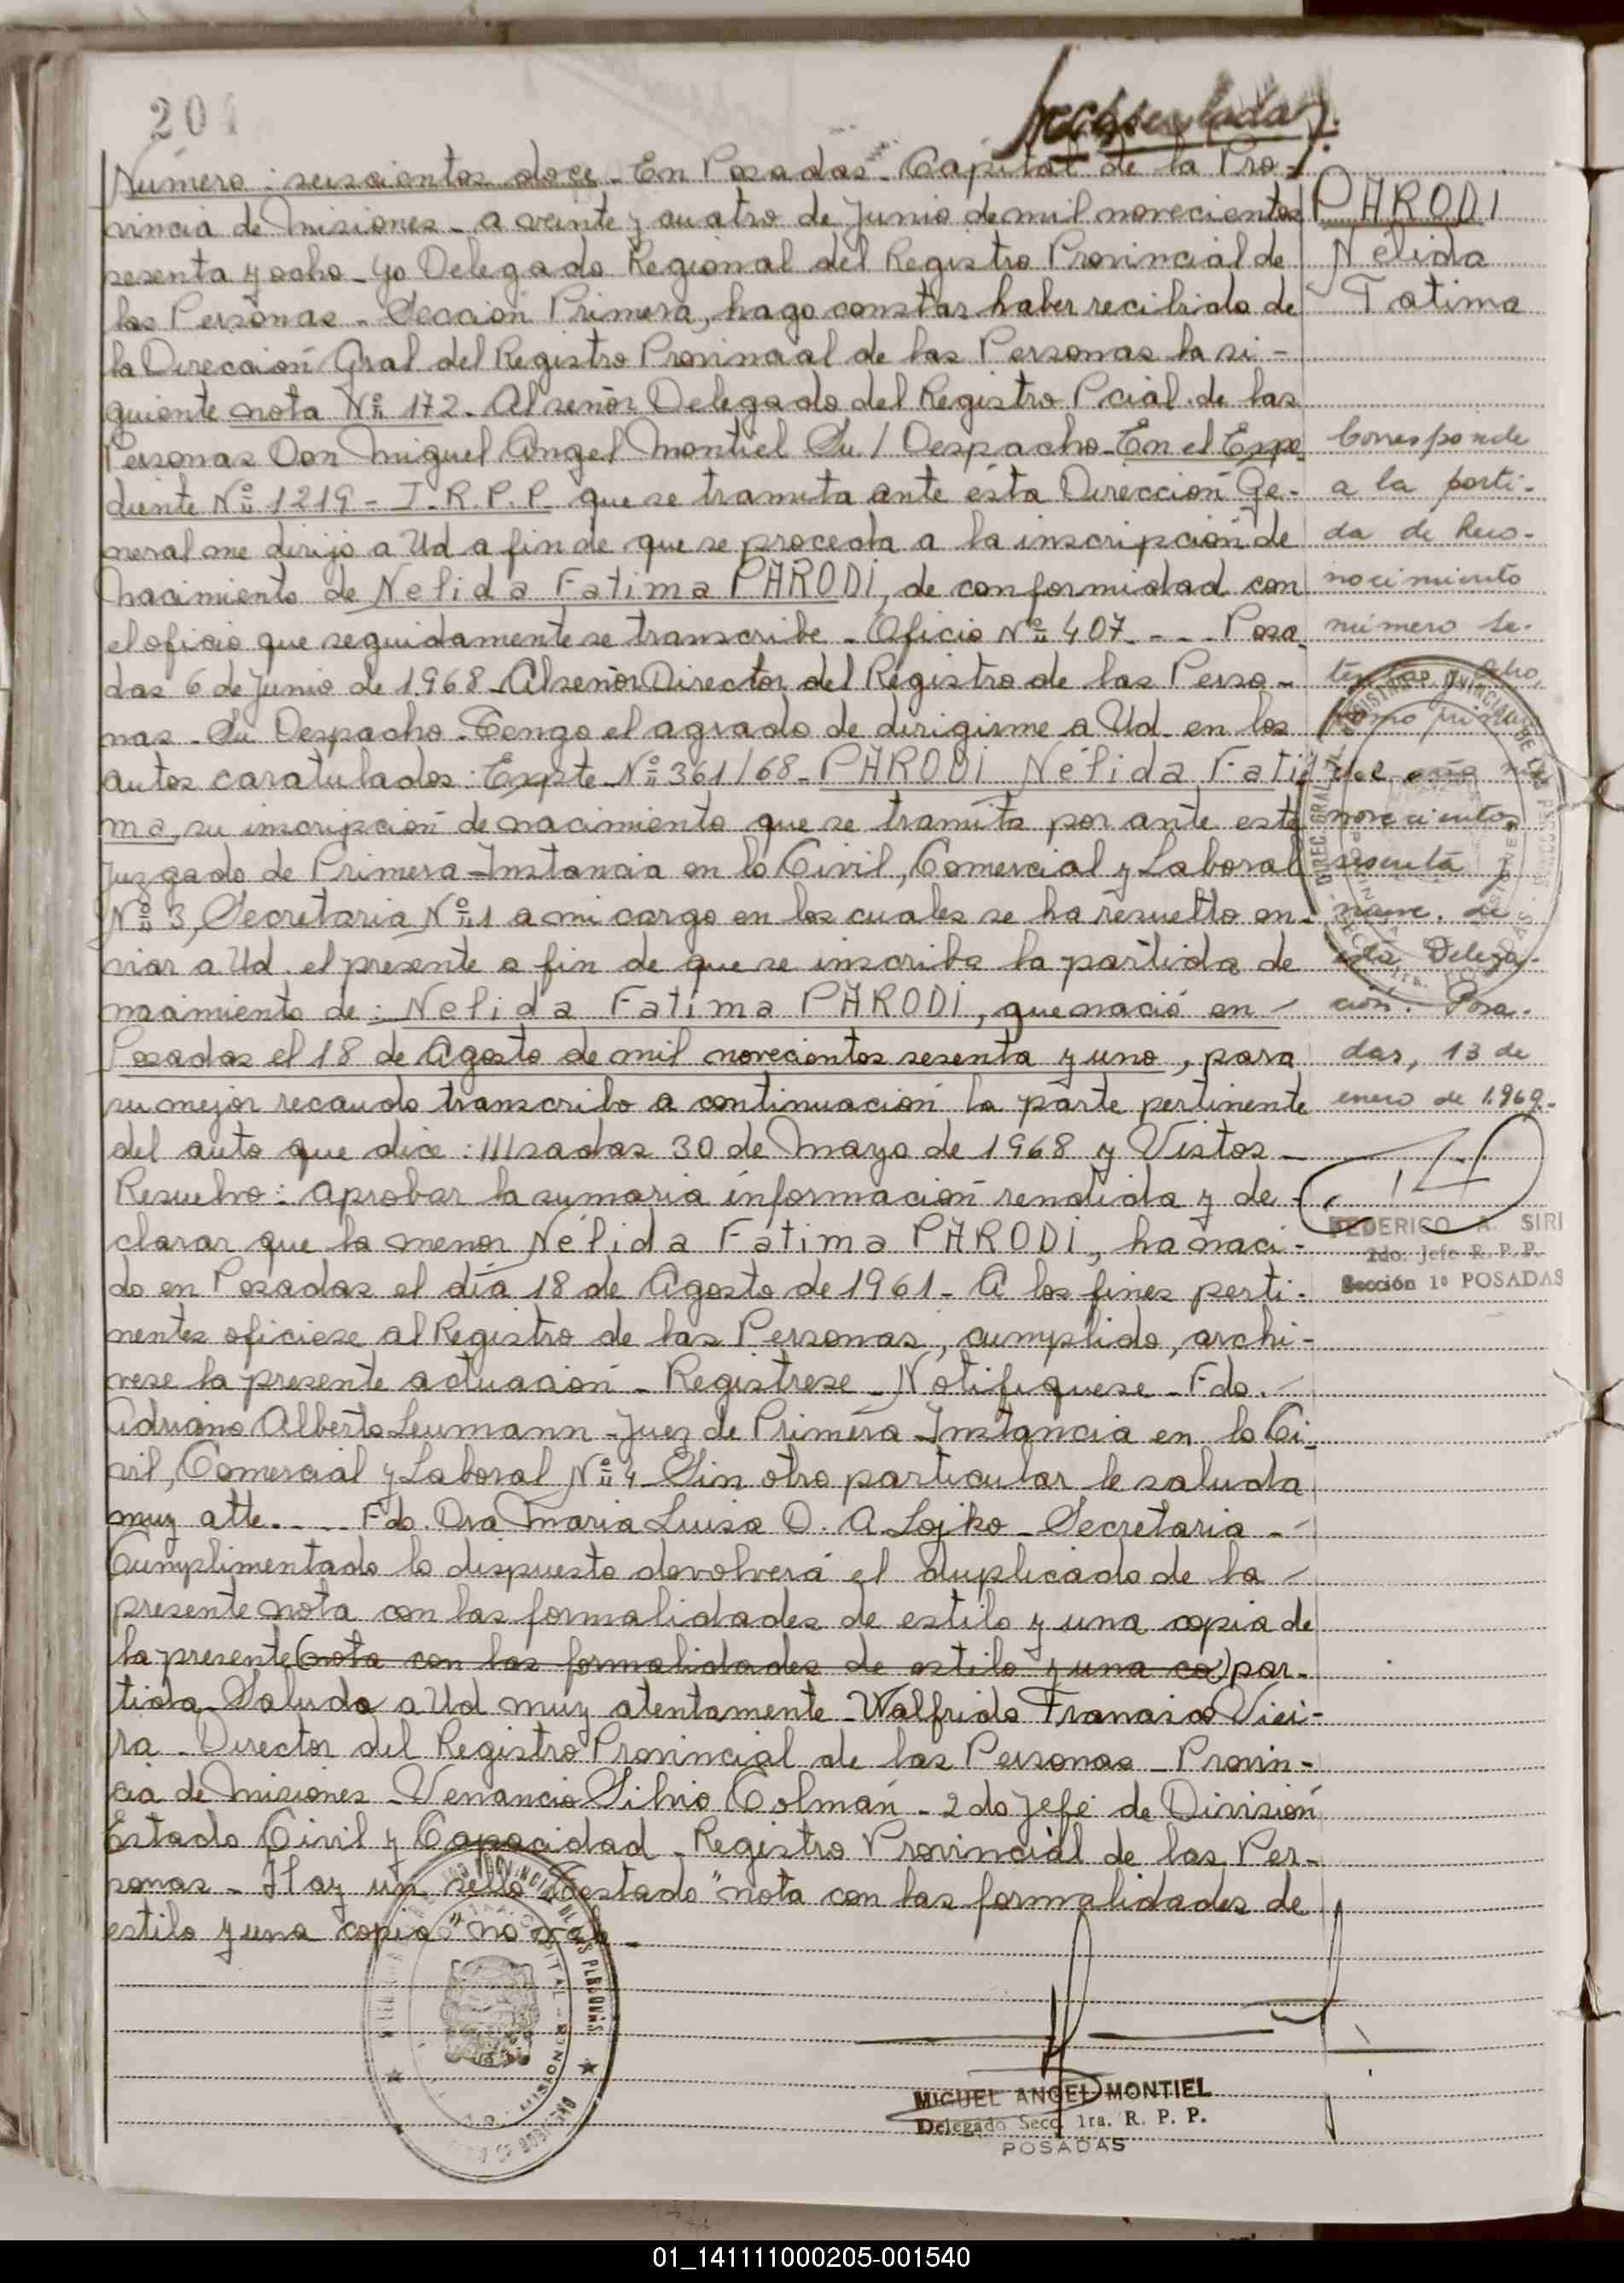 204
Número: seiscientos doce - En Posadas - Capital de la Pro-
vincia de Misiones - a veinte y cuatro de Junio de mil novecientos
sesenta y ocho - Yo Delegado Regional del Registro Provincial de
las Personas - Sección Primera, hago constar haber recibido de
la Dirección Gral del Registro Provincial de las Personas la si-
guiente nota Nº 172 - Al señor Delegado del Registro Pcial. de las
Personas Don Miguel Angel Montiel Su / Despacho - En el Expe-
diente Nº 1219 - I - R. P. P. que se tramita ante ésta Dirección Ge-
neral me dirijo a Ud a fin de que se proceda a la inscripción de
nacimiento de Nelida Fatima PARODI, de conformidad con
el oficio que seguidamente se transcribe - Oficio Nº 407 - - - Posa-
das 6 de Junio de 1.968 - Al señor Director del Registro de las Perso-
nas - Su Despacho - Tengo el agrado de dirigirme a Ud. en los
autos caratulados: Expte Nº 361/68 - PARODI Nélida Fati-
ma, su inscripción de nacimiento que se tramita por ante este
Juzgado de Primera - Instancia en lo Civil, Comercial y Laboral
Nº 3, Secretaria Nº 1 a mi cargo en los cuales se ha resuelto en-
viar a Ud. el presente a fin de que se inscriba la partida de
nacimiento de: Nelida Fatima PARODI, que nació en -
Posadas el 18 de Agosto de mil novecientos sesenta y uno, para
su mejor recaudo transcribo a continuación la parte pertinente
del auto que dice: ///sadas 30 de Mayo de 1968 y Vistos -
Resuelvo: Aprobar la sumaria información rendida y de-
clarar que la menor Nélida Fatima PARODI, ha naci-
do en Posadas el día 18 de Agosto de 1961 - A los fines perti-
nentes oficiese al Registro de las Personas, cumplido, archi-
vese la presente actuación - Registrese - Notifiquese - Fdo. -
Adriano Alberto Leumann - Juez de Primera Instancia en lo Ci-
vil, Comercial y Laboral Nº 4 - Sin otro particular le saluda
muy atte. - - - Fdo. Dra Maria Luisa D. A. Lojko - Secretaria - -
Cumplimentado lo dispuesto devolverá el duplicado de la -
presente nota con las formalidades de estilo y una copia de
la presente (nota con las formalidades de estilo y una co) par-
tida - Saluda a Ud muy atentamente - Walfrido Francisco Viei-
ra - Director del Registro Provincial de las Personas - Provin-
cia de Misiones - Venancio Silvio Colmán - 2do Jefe de División
Estado Civil y Capacidad - Registro Provincial de las Per-
sonas - Hay un sello - Testado "nota con las formalidades de
estilo y una copia" no vale -
PARODI
Nélida
Fatima
Corresponde
a la parti-
da de Reco-
nocimiento
número se-
tenta y ocho,
tomo primero
del año mil
novecientos
sesenta y
nueve. de
esta Delega-
ción. Posa-
das, 13 de
enero de 1.969.-
FEDERICO A. SIRI
2do. Jefe R. P. P.
Sección 1º POSADAS
MIGUEL ANGEL MONTIEL
Delegado Secc. 1ra. R. P. P.
POSADAS
01_141111000205-001540